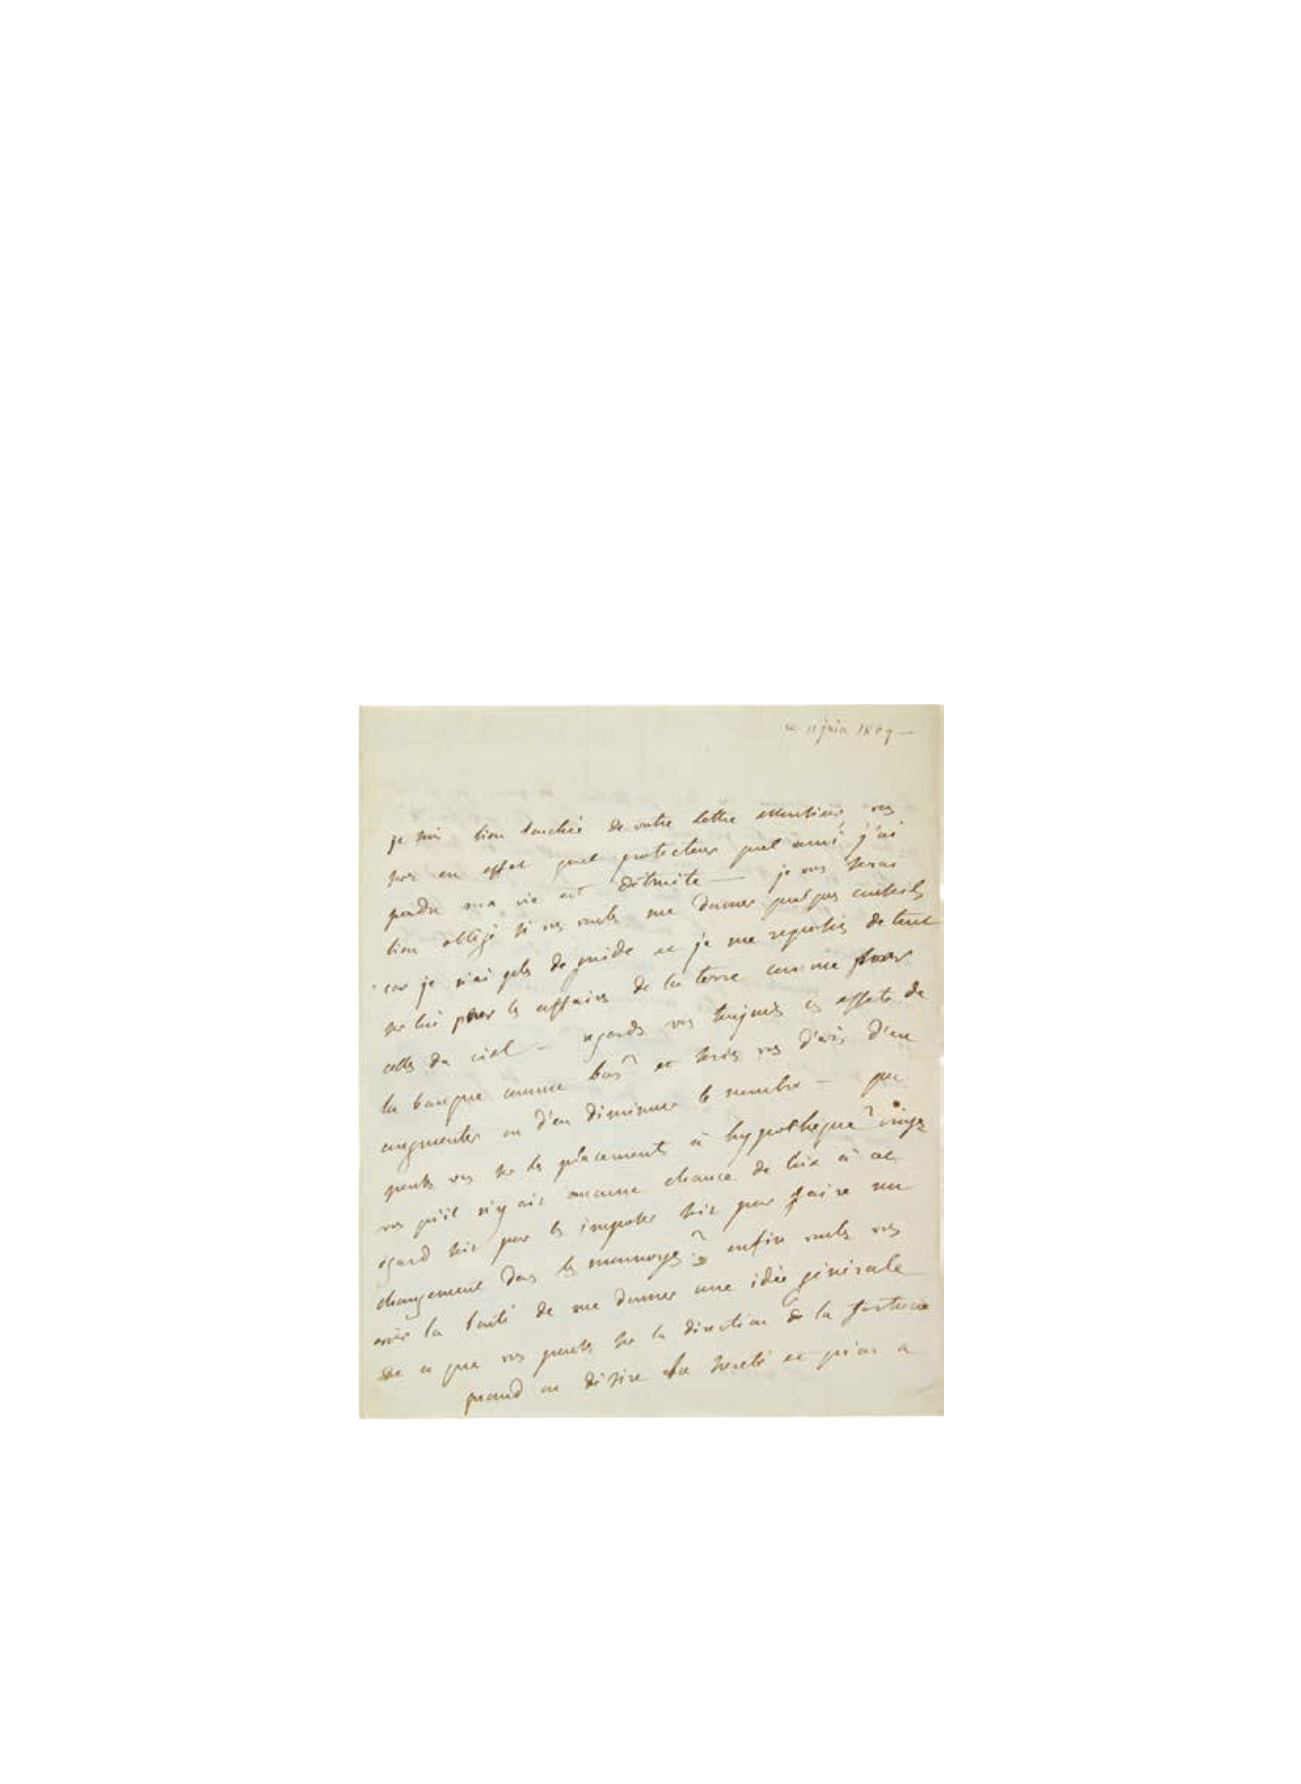 ce 11 juin 1809 —
je suis bien touchée de votre lettre monsieur vous
savez en effet quel protecteur quel ami j'ai
perdu ma vie est détruite — je vous serai
bien obligé si vous voulez me donner quelques conseils
car je n'ai plus de guide et je me reposois de tout
sur lui pour les affaires de la terre comme pour
celles du ciel — regardez vous toujours les effets de
la banque comme bons et seriez vous d'avis d'en
augmenter ou d'en diminuer le nombre — que
pensez vous sur les placements à hypothèque? croyez
vous qu'il n'y ait aucune chance de loix à cet
égard soit pour les impôts soit pour faire un
changement dans les monnoyes? enfin voulez vous
avoir la bonté de me donner une idée générale
de ce que vous pensez sur la direction de la fortune
quand on désire la sureté et qu'on a